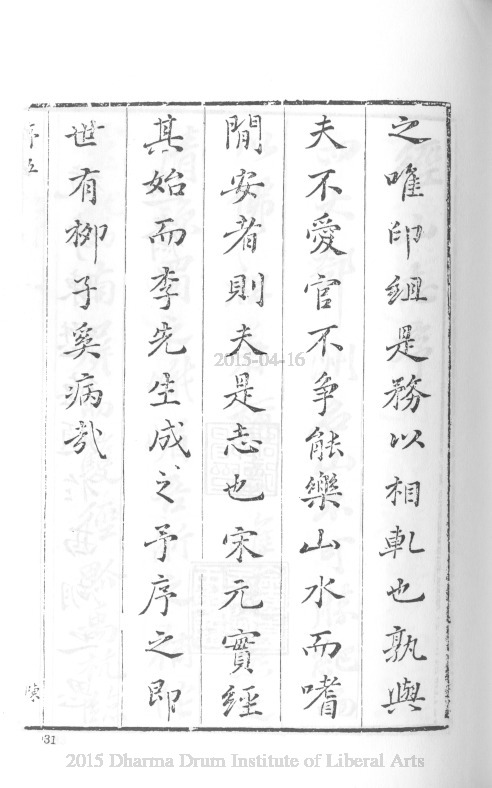 之唯印組是務以相軋也孰與
夫不愛官不爭能樂山水而嗜
閒安者則夫是志也宋元實經
其始而李先生成之予序之即
世有柳子奚病哉
序五
陳
031
2015-04-16
2015 Dharma Drum Institute of Liberal Arts